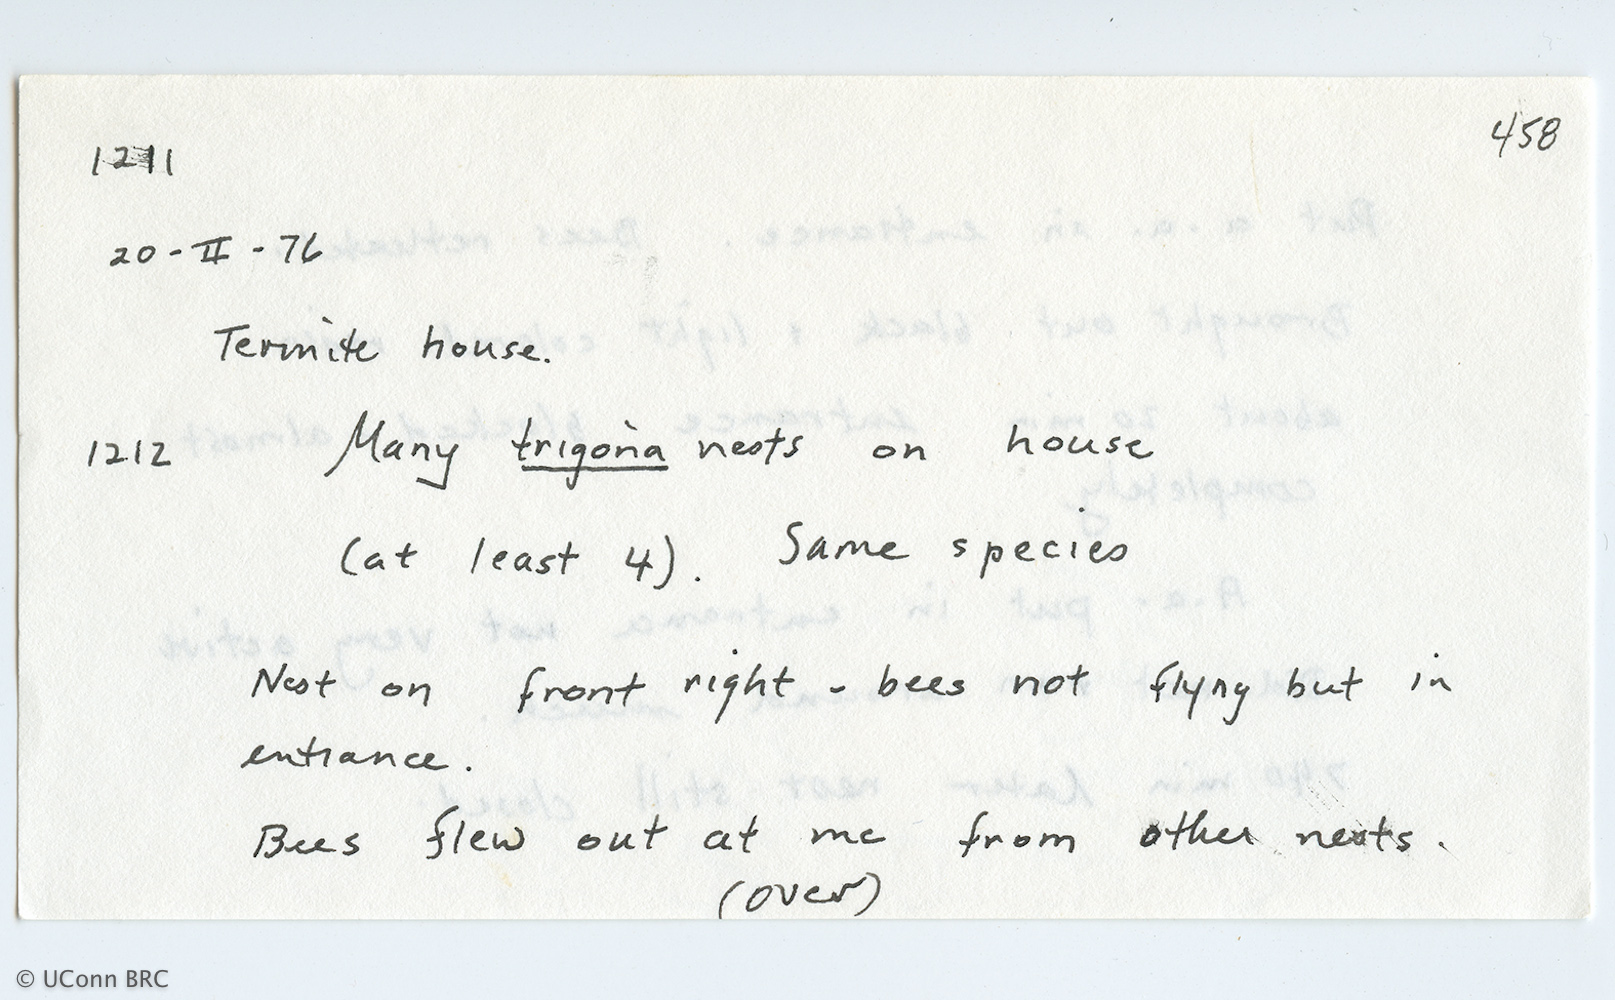 458
1211
20-II-76
Termite house.
1212 Many trigona nests on house
(at least 4). Same species
Nest on front right - bees not flyng but in
entrance.
Bees flew out at me from other nests.
(over)
© UConn BRC